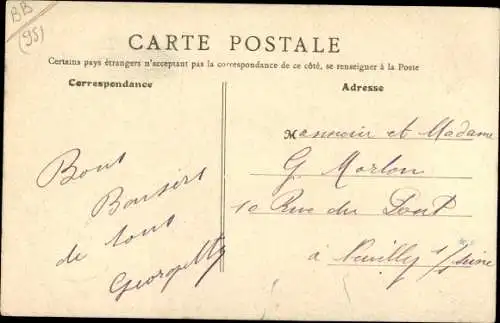 BB
(95)
CARTE POSTALE
Certains pays étrangers n'acceptent pas la correspondance de ce côté, se renseigner à la Poste
Correspondance
Adresse
Bons
Baisers
de tous
Georgette
Monsieur et Madame
G. Morlon
10 Rue du Pont
à Neuilly s/ Seine